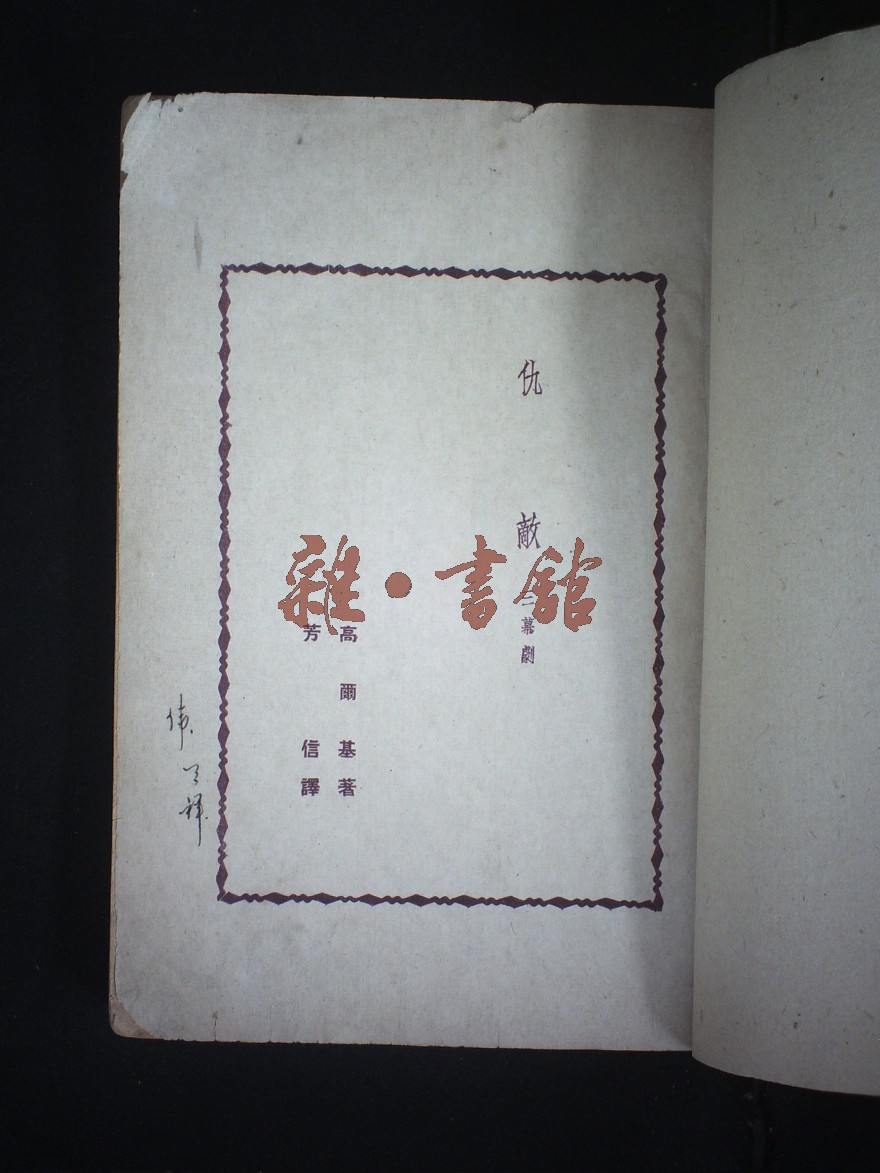 仇敵
三幕劇
高爾基著
芳信譯
雜•書館